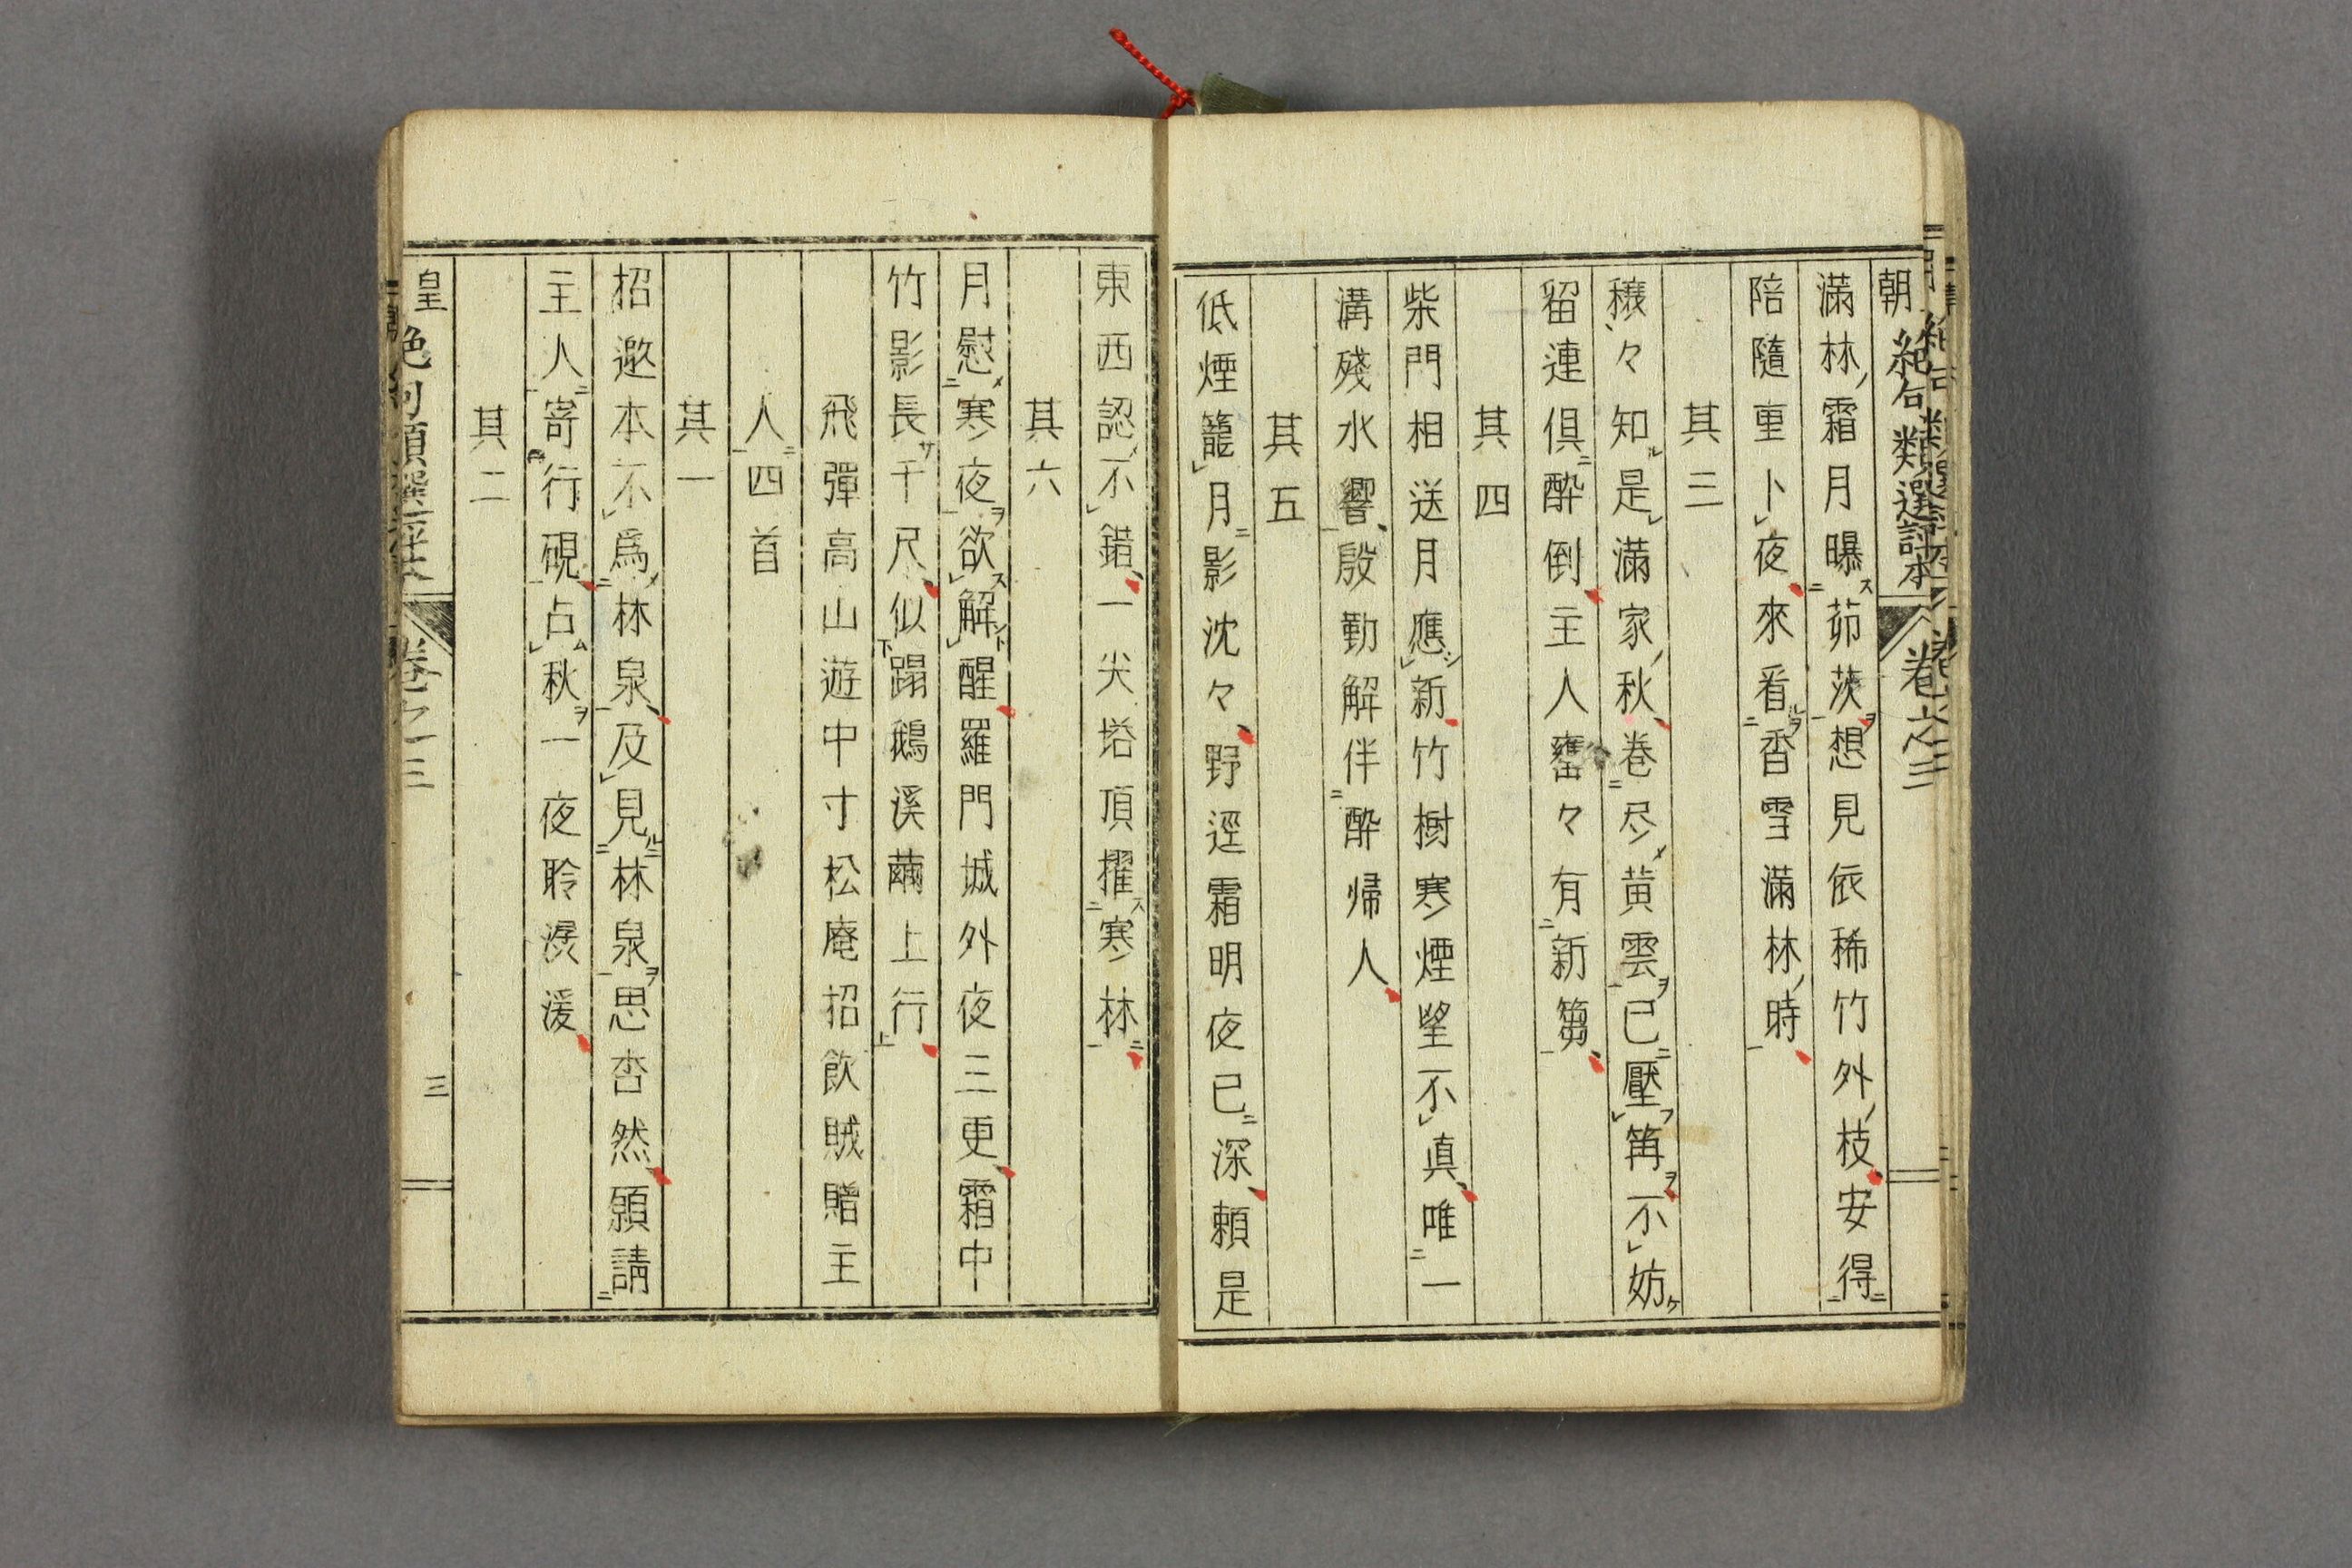 朝 絶句類選評本 卷之三
滿林霜月曝茆茨想見依稀竹外枝安得
陪隨重卜夜來看香雪滿林時
其三
穣々知是滿家秋卷尽黄雲已壓篝不妨
留連倶酔倒主人甕々有新篘
其四
柴門相送月應新竹樹寒煙望不真唯一
溝殘水響殷勤解伴酔帰人
其五
低煙籠月影沈々野逕霜明夜已深頼是
東西認不錯一尖塔頂擢寒林
其六
月慰寒夜欲解醒羅門城外夜三更霜中
竹影長千尺似蹋鵝溪繭上行
飛彈高山遊中寸松庵招飲賊贈主
人四首
其一
招邀本不爲林泉及見林泉思杳然願請
主人寄行硯占秋一夜聆潺湲
其二
皇 絶句類選評本 卷之三 三